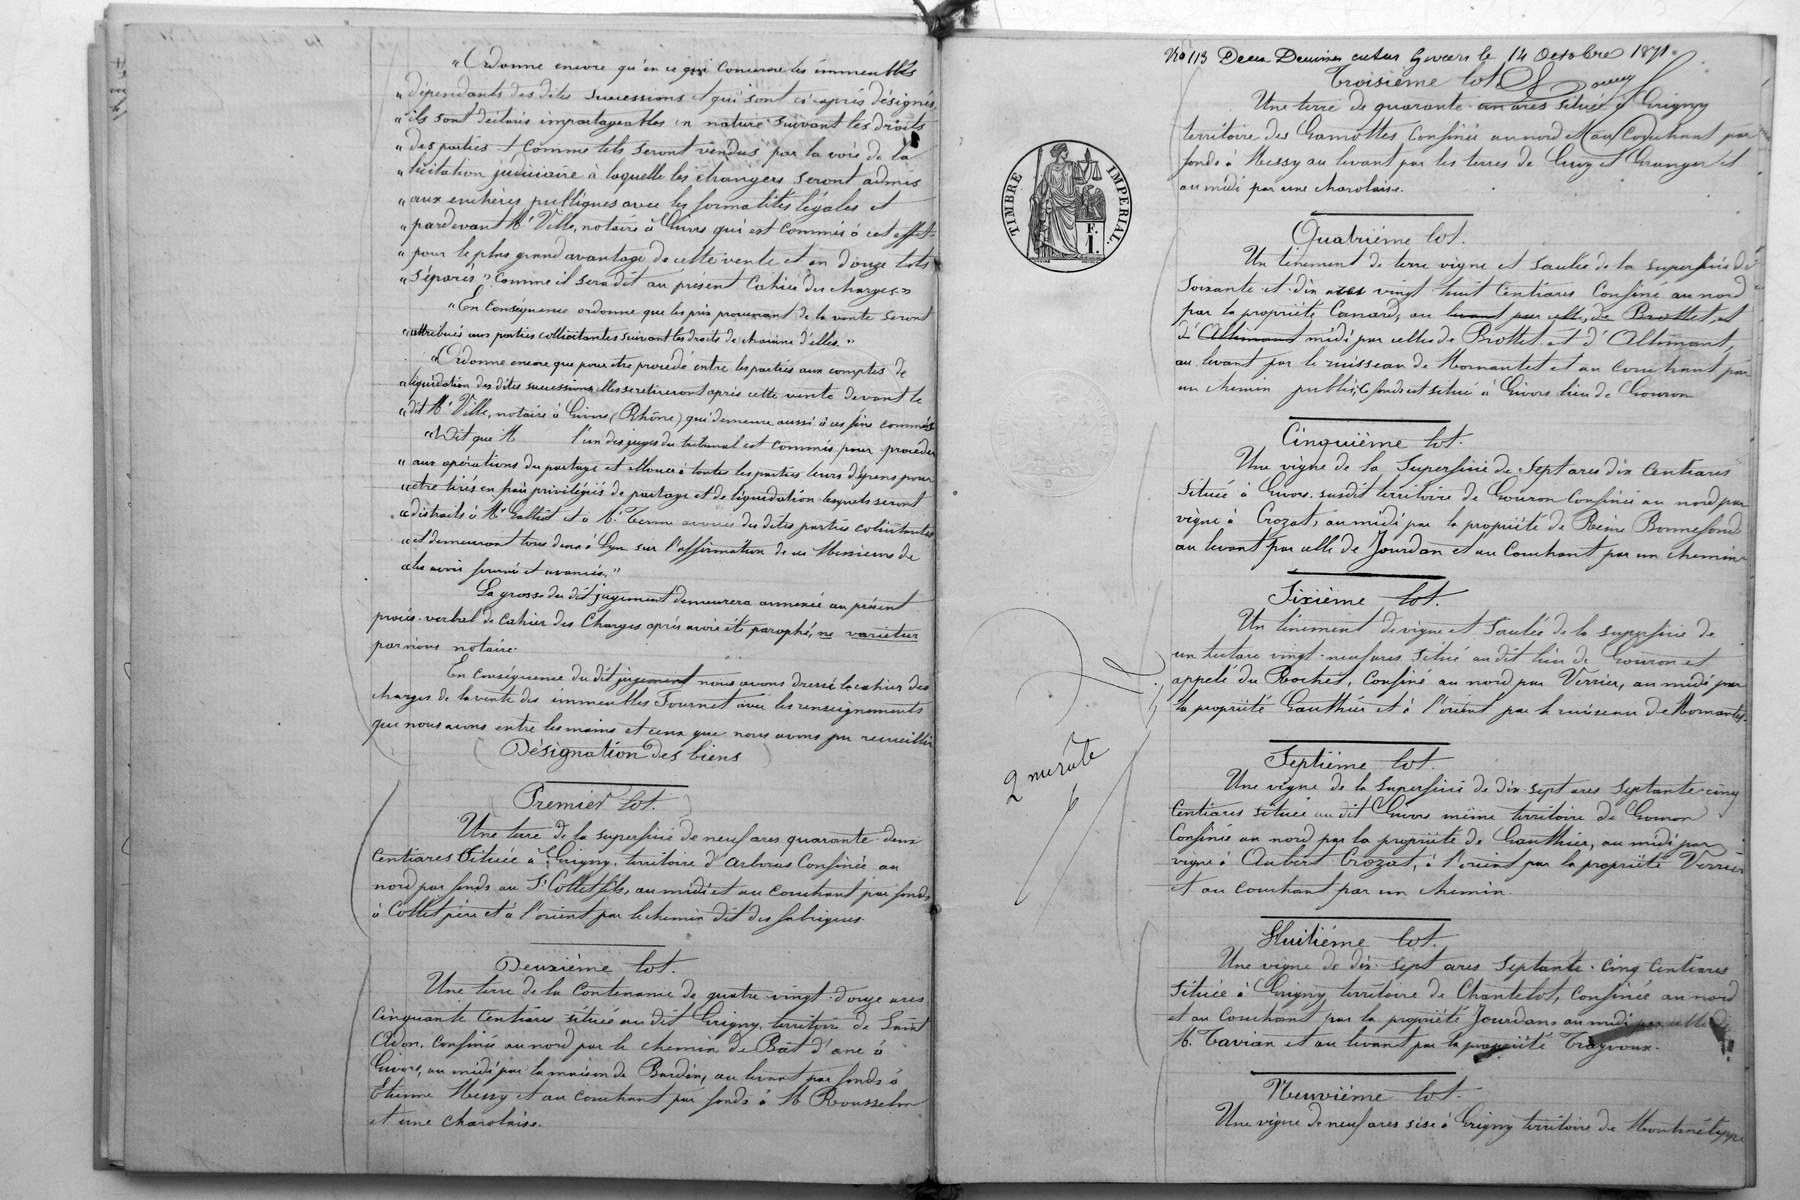 "Ordonne encore qu'en ce qui concerne les immeubles
" dépendants des dites successions et qui sont ci-après désignés,
" ils sont déclarés impartageables en nature suivant les droits
" des parties et comme tels seront vendus par la voie de la
" licitation judiciaire à laquelle les étrangers seront admis
" aux enchères publiques avec les formalités légales et
" pardevant Me Ville, notaire à Givors qui est commis à cet effet
" pour le plus grand avantage de cette vente et en douze lots
" séparés " comme il sera dit au présent Cahier des charges."
"En conséquence ordonne que les prix provenant de la vente seront
" attribués aux parties collicitantes suivant les droits de chacune d'elles."
"Ordonne encore que pour être procédé entre les parties aux comptes de
" liquidation des dites successions elles se retireront après cette vente devant le
" dit Me Ville, notaire à Givors (Rhône) qui demeure aussi à ces fins commis
"Dit que M l'un des juges du tribunal est commis pour procéder
" aux opérations du partage et alloue à toutes les parties leurs dépens pour
" être tirés en frais privilégiés de partage et de liquidation lesquels seront
" distraits à Me Galliot et à Me Terme avoués des dites parties colicitantes
" et demeurant tous deux à Lyon sur l'affirmation de ces Messieurs de
" les avoir fournis et avancés."
La grosse du dit jugement demeurera annexée au présent
procès-verbal de Cahier des Charges après avoir été paraphé, ne varietur
par nous notaire.
En Conséquence du dit jugement nous avons dressé le cahier des
charges de la vente des immeubles Fournet avec les renseignements
que nous avons entre les mains et ceux que nous avons pu recueillir
Désignation des biens
Premier lot.
Une terre de la superficie de neuf ares quarante-deux
Centiares Située à Grigny, territoire d'Arboras Confinée au
nord par fonds au Sr Collet fils, au midi et au couchant par fonds
à Collet père et à l'orient par le chemin dit des fabriques.
Deuxième lot.
Une terre de la Contenance de quatre-vingt-douze ares
Cinquante Centiares située au dit Grigny, territoire de Saint
Adon, Confinée au nord par le chemin de Bat d'ane à
Givors, au midi par la maison de Bardin, au levant par fonds à
Etienne Messy et au couchant par fonds à M Rousselon
et une charolaise.
No 113 Deux Deniers Givors le 14 Octobre 1871.
Troisième lot
Une terre de quarante-un ares située à Grigny
territoire des Gamottes Confinée au nord et au Couchant par
fonds à Messy au levant par les terres de Guiz et Granger et
au midi par une charolaise.
Quatrième lot.
Un tènement de terre vigne et saulée de la superficie de
soixante-et-dix ares vingt-huit Centiares Confiné au nord
par la propriété Canard, au levant par celle de Brottet, et
d'Allimant midi par celles de Brottet et d'Allimant,
au levant par le ruisseau de Mornantet et au couchant par
un chemin public, Ce fonds est situé à Givors lieu de Gouron
Cinquième lot.
Une vigne de la Superficie de Sept ares dix Centiares
Située à Givors susdit territoire de Gouron Confinée au nord par
vigne à Crozat, au midi par la propriété de Reine Bonnefond
au levant par celle de Jourdan et au Couchant par un chemin
Sixième lot.
Un tènement de vigne et Saulée de la superficie de
un hectare vingt-neuf ares situé au dit lieu de Gouron et
appelé du Rocher, Confiné au nord par Verrier, au midi par
la propriété Gauthier et à l'orient par le ruisseau de Mornantet
2 minute
Septième lot.
Une vigne de la Superficie de dix-sept ares septante-cinq
Centiares située au dit Givors même territoire de Gouron
Confinée au nord par la propriété de Gauthier, au midi par
vigne à Aubert Crozat, à l'orient par la propriété Verrier
et au couchant par un chemin.
Huitième lot.
Une vigne de dix-sept ares septante-cinq Centiares
Située à Grigny territoire de Chantelot, Confinée au nord
et au Couchant par la propriété Jourdan, au midi par celle de
M. Tavian et au levant par la propriété Trayvoux.
Neuvième lot.
Une vigne de neuf ares sise à Grigny territoire de
TIMBRE IMPERIAL.
F.
1.